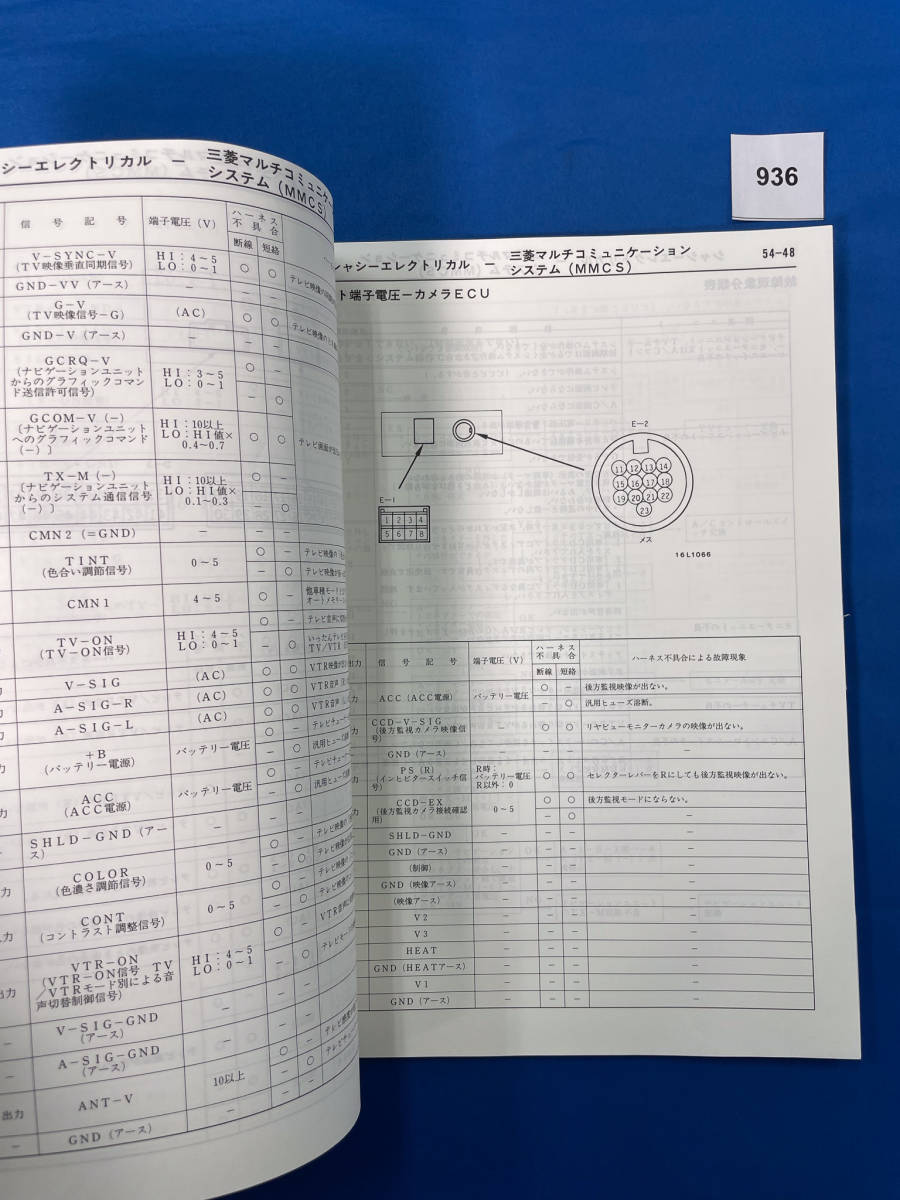 936
シーエレクトリカル － 三菱マルチコミュニケー
システム（MMCS）
信号記号 端子電圧（V） ハーネス不具合
断線 短絡
V－SYNC－V
（TV映像垂直同期信号） HI：4～5
LO：0～1 ○ ○
GND－VV（アース） － － －
G－V
（TV映像信号－G） （AC） ○ ○
GND－V（アース） － － －
GCRQ－V
（ナビゲーションユニット
からのグラフィックコマン
ド送信許可信号） HI：3～5
LO：0～1 ○ －
－ ○
GCOM－V（－）
〔ナビゲーションユニット
へのグラフィックコマンド
（－）〕 HI：10以上
LO：HI値×
0.4～0.7 ○ ○
TX－M（－）
〔ナビゲーションユニット
からのシステム通信信号
（－）〕 HI：10以上
LO：HI値×
0.1～0.3 ○ －
－ ○
CMN2（＝GND） － － －
TINT
（色合い調節信号） 0～5 ○ － テレビ映像の
－ ○ テレビ映像が
CMN1 4～5 ○ －
TV－ON
（TV－ON信号） HI：4～5
LO：0～1 ○ －
－ ○ いったんテレビ
TV／VTR
V－SIG （AC） ○ ○ VTR映像が
A－SIG－R （AC） ○ ○ VTR音声
A－SIG－L （AC） ○ ○ VTR音声
＋B
（バッテリー電源） バッテリー電圧 ○ － テレビチューナー
－ ○ 汎用ヒューズ
ACC
（ACC電源） バッテリー電圧 ○ － テレビチューナー
－ ○ 汎用ヒューズ
SHLD－GND（アー
ス） － － －
COLOR
（色濃さ調節信号） 0～5 ○ － テレビ映像の
－ ○ テレビ映像が
CONT
（コントラスト調整信号） 0～5 ○ － テレビ映像の
－ ○ テレビ映像の
出力 VTR－ON
（VTR－ON信号 TV
／VTRモード別による音
声切替制御信号） HI：4～5
LO：0～1 ○ － VTR音声に
－ ○ テレビモー
V－SIG－GND
（アース） － － －
A－SIG－GND
（アース） － － －
出力 ANT－V 10以上 ○ －
－ ○ テレビチュ
－ GND（アース） － － －
シャシーエレクトリカル － 三菱マルチコミュニケーション
システム（MMCS） 54－48
ト端子電圧－カメラECU
E－2
11 12 13 14
15 16 17 18
19 20 21 22
23
メス
E－1
1 2 3 4
5 6 7 8
16L1066
信号記号 端子電圧（V） ハーネス不具合 ハーネス不具合による故障現象
断線 短絡
ACC（ACC電源） バッテリー電圧 ○ － 後方監視映像が出ない。
－ ○ 汎用ヒューズ溶断。
CCD－V－SIG
（後方監視カメラ映像信
号） － ○ ○ リヤビューモニターカメラの映像が出ない。
GND（アース） － － － －
PS（R）
（インヒビタースイッチ信
号） R時：
バッテリー電圧
R以外：0 ○ ○ セレクターレバーをRにしても後方監視映像が出ない。
CCD－EX
（後方監視カメラ接続確認
用） 0～5 ○ ○ 後方監視モードにならない。
－ ○ －
SHLD－GND － － － －
GND（アース） － － － －
（制御） － － － －
GND（映像アース） － － － －
（映像アース） － － － －
V2 － － － －
V3 － － － －
HEAT － － － －
GND（HEATアース） － － － －
V1 － － － －
GND（アース） － － － －